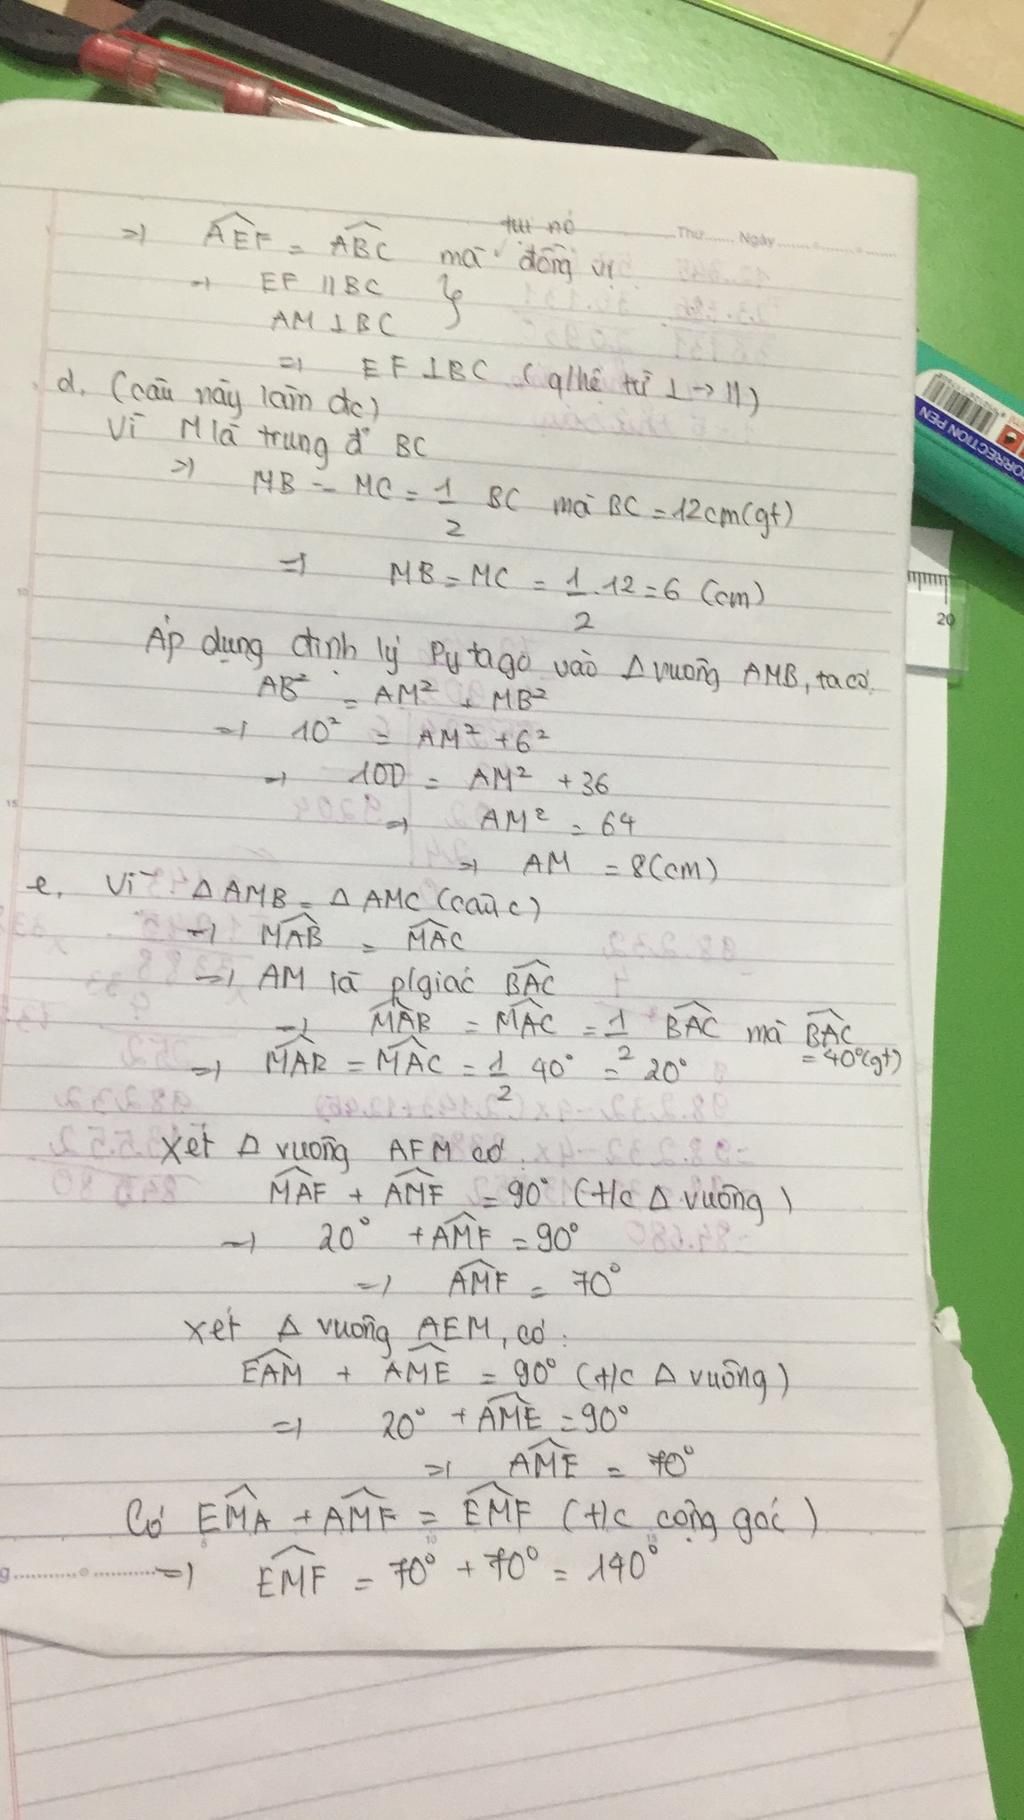 Thứ....... Ngày.......
tư nó
=> AEF = ABC mà đồng vị
=> EF // BC }
AM ⊥ BC
=> EF ⊥ BC (q/hệ từ ⊥ -> //)
d. (câu này làm đc)
Vì M là trung đ' BC
=> MB = MC = 1/2 BC mà BC = 12cm (gt)
=> MB = MC = 1/2 . 12 = 6 (cm)
Áp dụng định lý Pytago vào Δ vuông AMB, ta có.
AB² = AM² + MB²
=> 10² = AM² + 6²
=> 100 = AM² + 36
=> AM² = 64
=> AM = 8 (cm)
e. Vì Δ AMB = Δ AMC (câu c)
=> MAB = MAC
=> AM là p/giác BAC
=> MAB = MAC = 1/2 BAC mà BAC
= 40° (gt)
=> MAB = MAC = 1/2 40° = 20°
Xét Δ vuông AFM có.
MAF + AMF = 90° (t/c Δ vuông)
=> 20° + AMF = 90°
=> AMF = 70°
xét Δ vuông AEM, có:
EAM + AME = 90° (t/c Δ vuông)
=> 20° + AME = 90°
=> AME = 70°
Có EMA + AMF = EMF (t/c cộng góc)
=> EMF = 70° + 70° = 140°
CORRECTION PEN
20